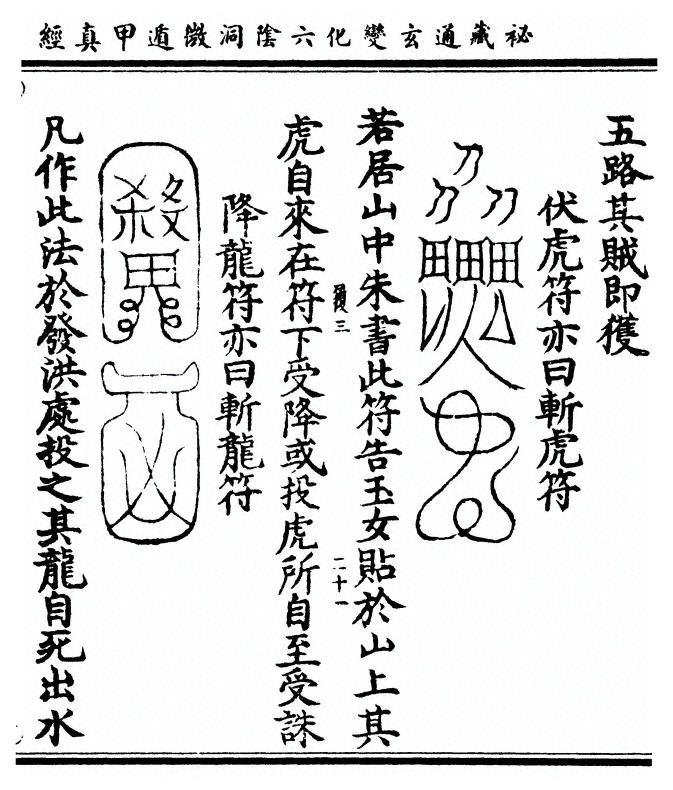 祕藏通玄變化六陰洞微遁甲真經
五路其賊即獲
伏虎符亦曰斬虎符
若居山中朱書此符告玉女貼於山上其
二十一
虎自來在符下受降或投虎所自至受誅
降龍符亦曰斬龍符
凡作此法於發洪處投之其龍自死出水